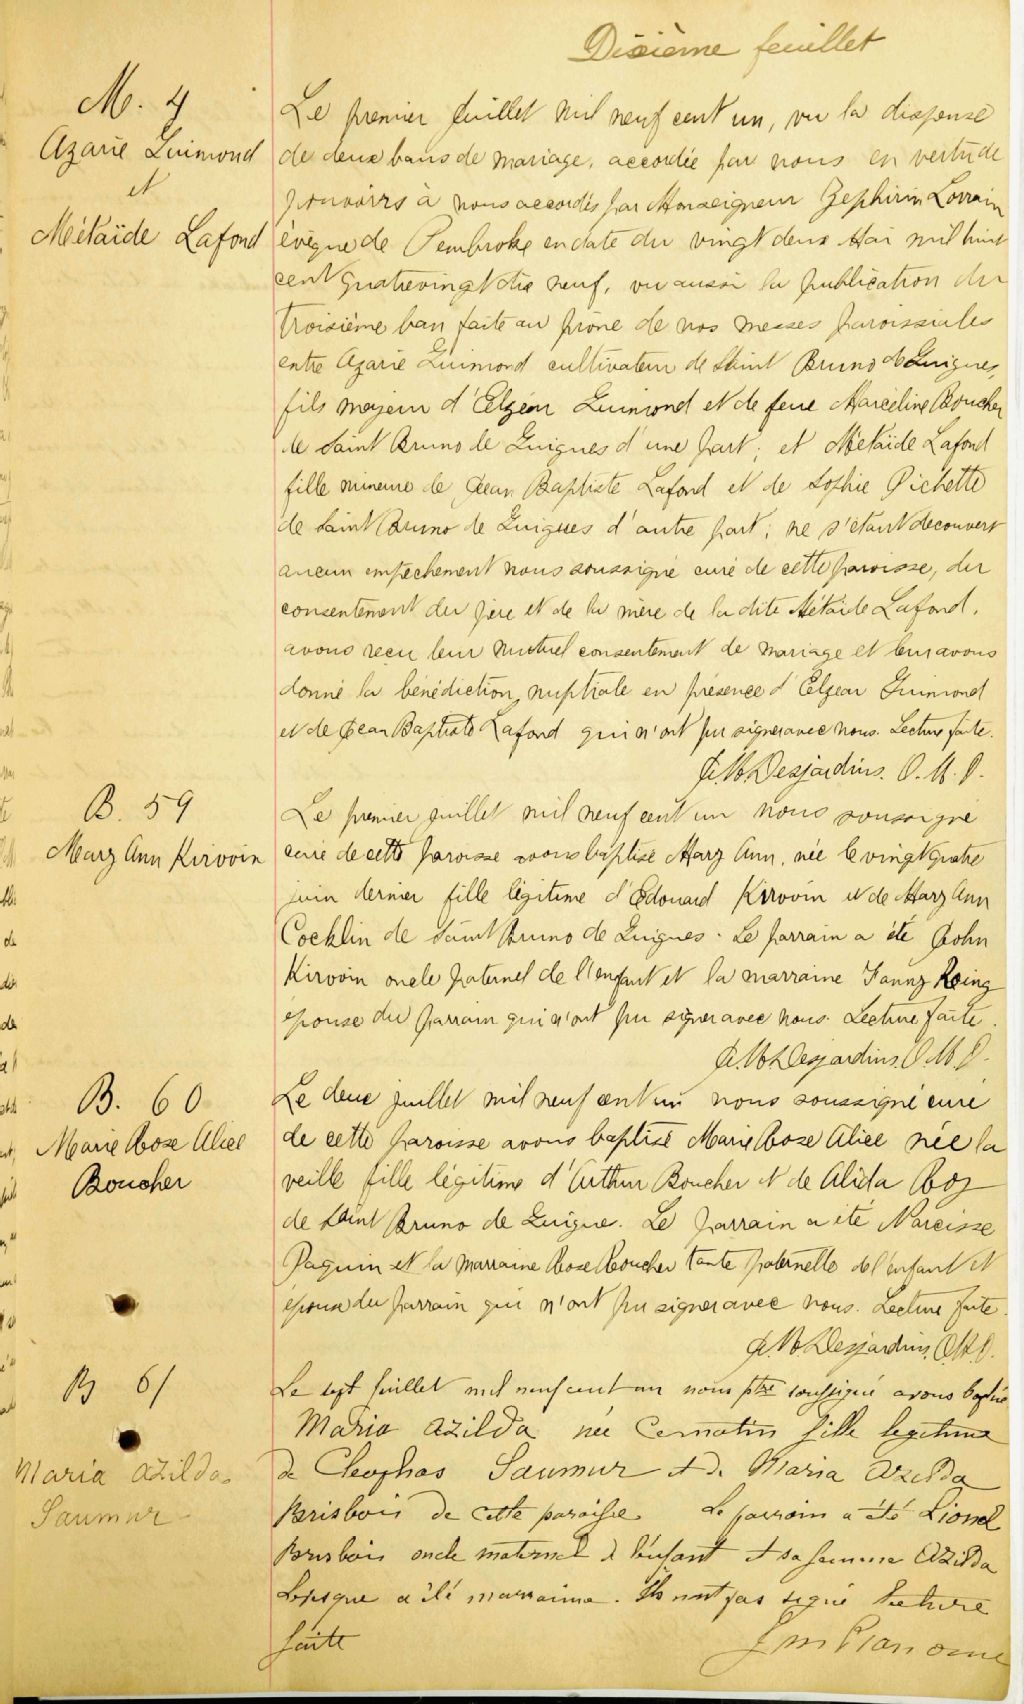 Dixième feuillet
M. 4
Azarie Guimond
et
Métaïde Lafond
Le premier Juillet mil neuf cent un, vu la dispense
de deux bans de mariage, accordée par nous en vertu de
pouvoirs à nous accordés par Monseigneur Zephirin Lorrain
évêque de Pembroke en date du vingt deux Mai mil huit
cent quatrevingt dix neuf, vu aussi la publication du
troisième ban faite au prône de nos messes paroissiales
entre Azarie Guimond cultivateur de Saint Bruno de Guigues,
fils majeur d'Elzéar Guimond et de feue Marcéline Boucher
de Saint Bruno de Guigues d'une part; et Métaïde Lafond
fille mineure de Jean Baptiste Lafond et de Sophie Pichette
de Saint Bruno de Guigues d'autre part; ne s'étant decouvert
aucun empêchement nous soussigné curé de cette paroisse, du
consentement du père et de la mère de la dite Métaïde Lafond,
avons reçu leur mutuel consentement de mariage et leur avons
donné la bénédiction nuptiale en présence d'Elzear Guimond
et de Jean Baptiste Lafond qui n'ont pu signer avec nous. Lecture faite.
Desjardins. O.M.I.
B. 59
Mary Ann Kirvoin
Le premier juillet mil neuf cent un nous soussigné
curé de cette paroisse avons baptisé Mary Ann, née le vingt quatre
juin dernier fille légitime d'Edouard Kirvoin et de Mary Ann
Cocklin de Saint Bruno de Guigues. Le parrain a été John
Kirvoin oncle paternel de l'enfant et la marraine Fanny
épouse du parrain qui n'ont pu signer avec nous. Lecture faite.
Desjardins O.M.I.
B. 60
Marie Rose Alice
Boucher
Le deux juillet mil neuf cent un nous soussigné curé
de cette paroisse avons baptisé Marie Rose Alice née la
veille fille légitime d'Arthur Boucher et de Alida Roy
de Saint Bruno de Guigue. Le parrain a été Narcisse
Paquin et la marraine Rose Boucher tante paternelle de l'enfant et
épouse du parrain qui n'ont pu signer avec nous. Lecture faite.
Desjardins, O.M.I.
B 61
Maria Azilda
Saumur
Le sept Juillet mil neuf cent un nous ptre soussigné avons baptisé
Maria Azilda née ce matin fille legitime
de Cleophas Saumur et de Maria Azilda
Brisbois de cette paroisse Le parrain a été Lionel
Brisbois oncle maternel de l'enfant et sa femme Azilda
a été marraine. Ils n'ont pas signé lecture
faite